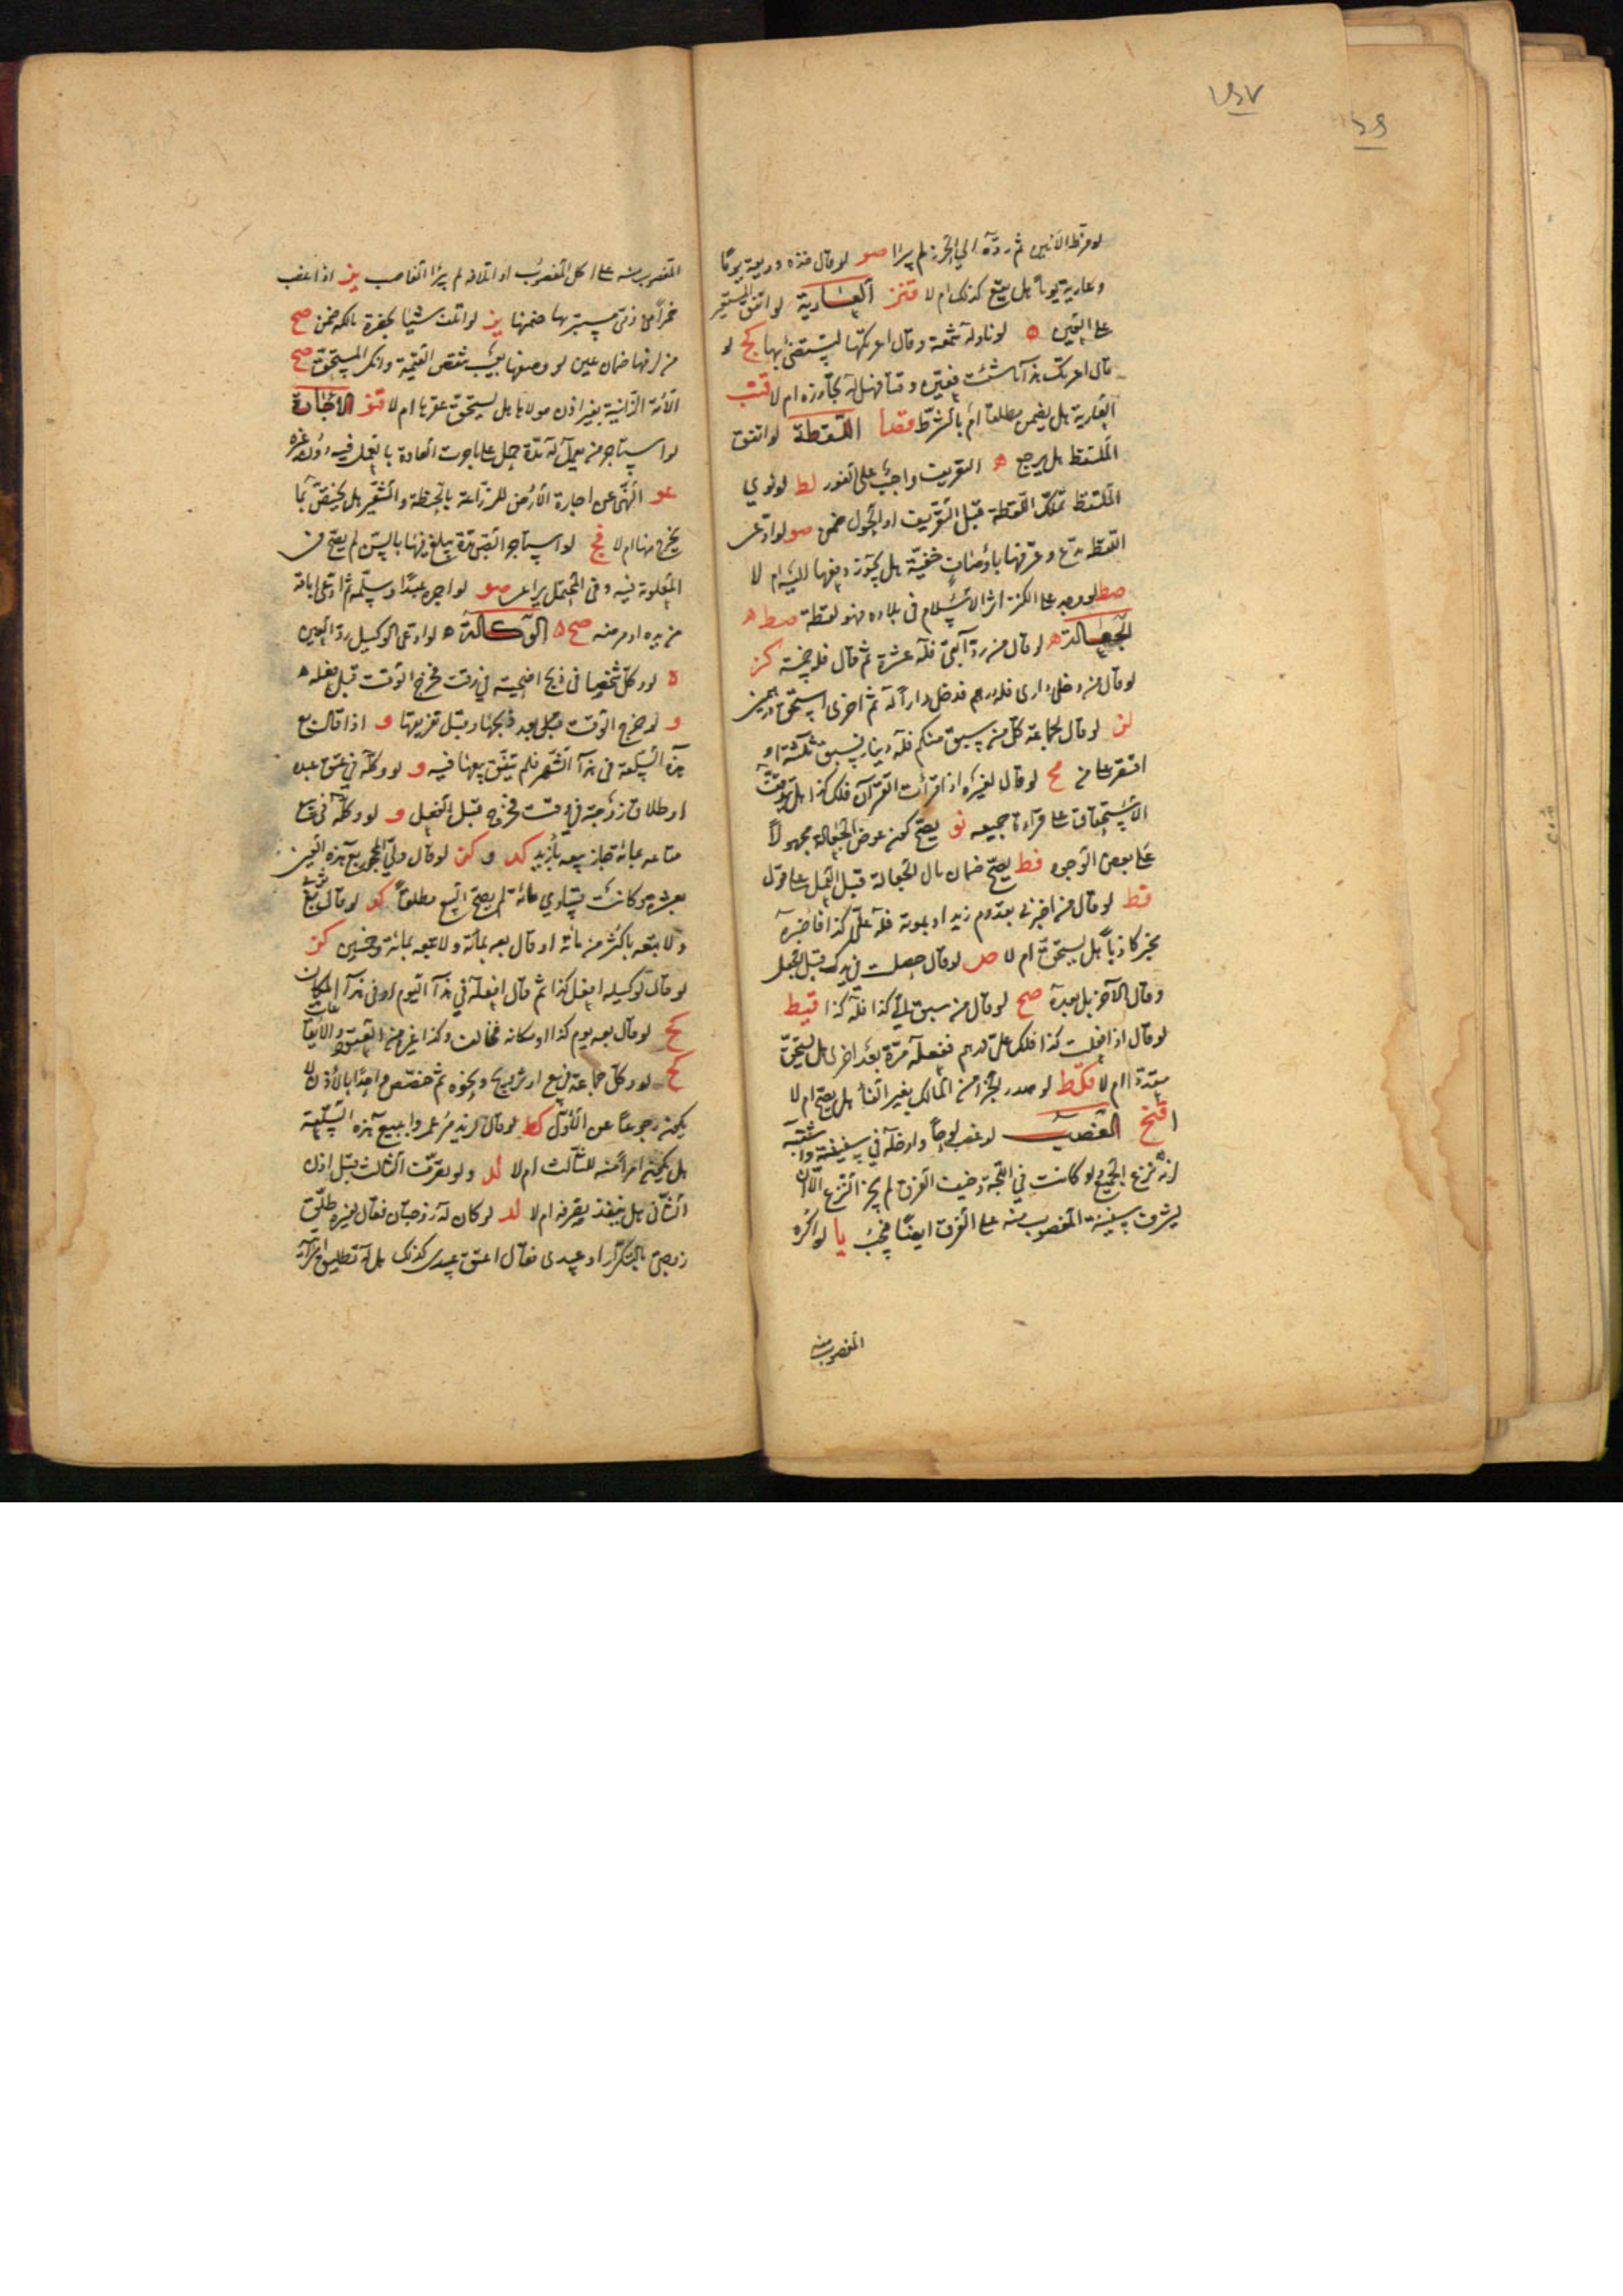 لو فرّط الأمين ثم ردّه إلى الحرز لم يبرأ صو لو قال خذه وديعة يومًا
وعارية يومًا هل يصح كذلك أم لا قنز العارية لو اتفق المستعير
على العين ه لو ناوله شمعة وقال أعرتكها لتستضئ بها كج لو
قال أعرتك هذا ما شئت فعيّره وقتا فهل له تجاوزه أم لا قنب
العارية هل يضمن مطلقا أم بالشرط قصا اللقطة لو اتفق
الملتقط هل يرجع ه التعريف واجب على الفور لط لو نوى
الملتقط تملّك اللقطة قبل التعريف أو الحول ضمن صو لو ادّعى
اللقطة مدّع وعرّفها بأوصاف خفيّة هل يجوز دفعها إليه أم لا
صط لو وجد على الكنز أثر الإسلام في بلاده فهو لقطة صط ه
الجعالة ه لو قال من ردّ آبقي فله عشرة ثم قال فله خمسة كز
لو قال من دخل داري فله درهم فدخل دارًا له ثم أخرى استحق درهمين
لن لو قال لجماعة كل من سبق منكم فله دينار فسبق ثلثة أو
اقتصر على من مح لو قال لغيره إذا قرأت القرآن فلك كذا هل يتوقف
الاستحقاق على قراءة جميعه نو يصح كون عوض الجعالة مجهولًا
على بعض الوجوه قط يصح ضمان مال الجعالة قبل العمل على قول
قط لو قال من أخبرني بقدوم زيد أو بموته فله عليّ كذا فأخبره
مخبر كاذبًا هل يستحق أم لا ص لو قال حصلت في يدك قبل الجعل
وقال الآخر بل بعده صح لو قال من سبق إلى كذا فله كذا قيط
لو قال إذا فعلت كذا فلك عليّ درهم ففعله مرة بعد أخرى هل يستحق
متعددًا أم لا قكط لو صدر الجزء من المالك بغير إنشاء هل يصح أم لا
قنح الغصب لو غصب لوحًا وأدخله في سفينته وأثبته
لزمه نزع الجميع ولو كانت في اللجة وخيف الغرق لم يجز النزع إلا أن
يشرف سفينة المغصوب منه على الغرق أيضًا فيجب يا لو أكره
المغصوب منه
المغصوب منه على أكل المغصوب أو إتلافه لم يبرأ الغاصب يز إذا غصب
خمرًا من ذمّي مستتر بها ضمنها يز لو أتلف شيئًا بحضرة مالكه ضمن صح
من لزمها ضمان عين لو وصفها بعيب ينقص القيمة وأنكر المستحق صح
الأمة الزانية بغير إذن مولاها هل يستحق عقرها أم لا قنو الإجارة
لو استأجر من يعمل له مدّة حمل على ما جرت العادة بالعمل فيه دون غيره
عو النهي عن إجارة الأرض للزراعة بالحنطة والشعير هل يختص بما
يخرج منها أم لا فج لو استأجر الصبي مدّة يبلغ فيها بالسن لم يصح في
المعلومة فيه وفي المحتمل يراعى صو لو آجره عبدًا وسلّمه ثم ادّعى إباقه
من يده أو مرضه صح ه الوكالة ه لو ادعى الوكيل رد العين
ه لو وكّل شخصًا في ذبح أضحيته في وقت فخرج الوقت قبل فعله
و لو خرج الوقت قبل بعد ذبحها وقبل تفريقها و إذا قال بع
هذه السلعة في هذا الشهر فلم يتفق بيعها فيه و لو وكله في عتق عبده
أو طلاق زوجته في وقت فخرج قبل الفعل و لو وكله في بيع
متاعه بمائة جاز بيعه بأزيد كد و كن لو قال ولي المحجور بع هذه العين
بعشرة وكانت تساوي مائة لم يصح البيع مطلقًا كو لو قال بع ثوبي
ولا تبعه بأكثر من مائة أو قال بعه بمائة ولا تبعه بمائة وخمسين كن
لو قال لوكيله افعل كذا ثم قال افعله في هذا اليوم أو في هذا المكان
كح لو قال بعه يوم كذا أو مكانه فخالف وكذا غيره من العقود والإيقاعات
كح لو وكّل جماعة في بيع أو تزويج ونحوه ثم خصّص واحدًا بالإذن لا
يكون رجوعًا عن الأول كط لو قال لزيد مر عمروا ببيع هذه السلعة
هل يكون أمرًا منه للثالث أم لا لد ولو تصرّف الثالث قبل إذن
الثاني هل ينفذ تصرفه أم لا لد لو كان له زوجتان فقال لغيره طلّق
زوجتي بالتكرار أو عبيدي فقال أعتق عبيدي كذلك هل له تطليق امرأته